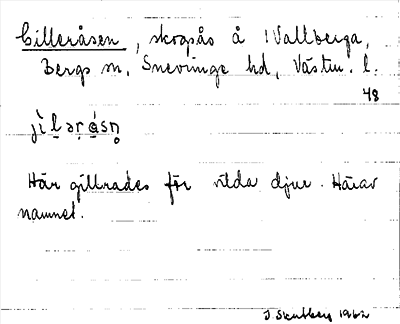 Gilleråsen, skogsås å 1 Vallberga,
Bergs sn, Snevringe hd, Västm. l.
48
jìləråsn̥
Här gillrades för vilda djur. Härav
namnet.
1962